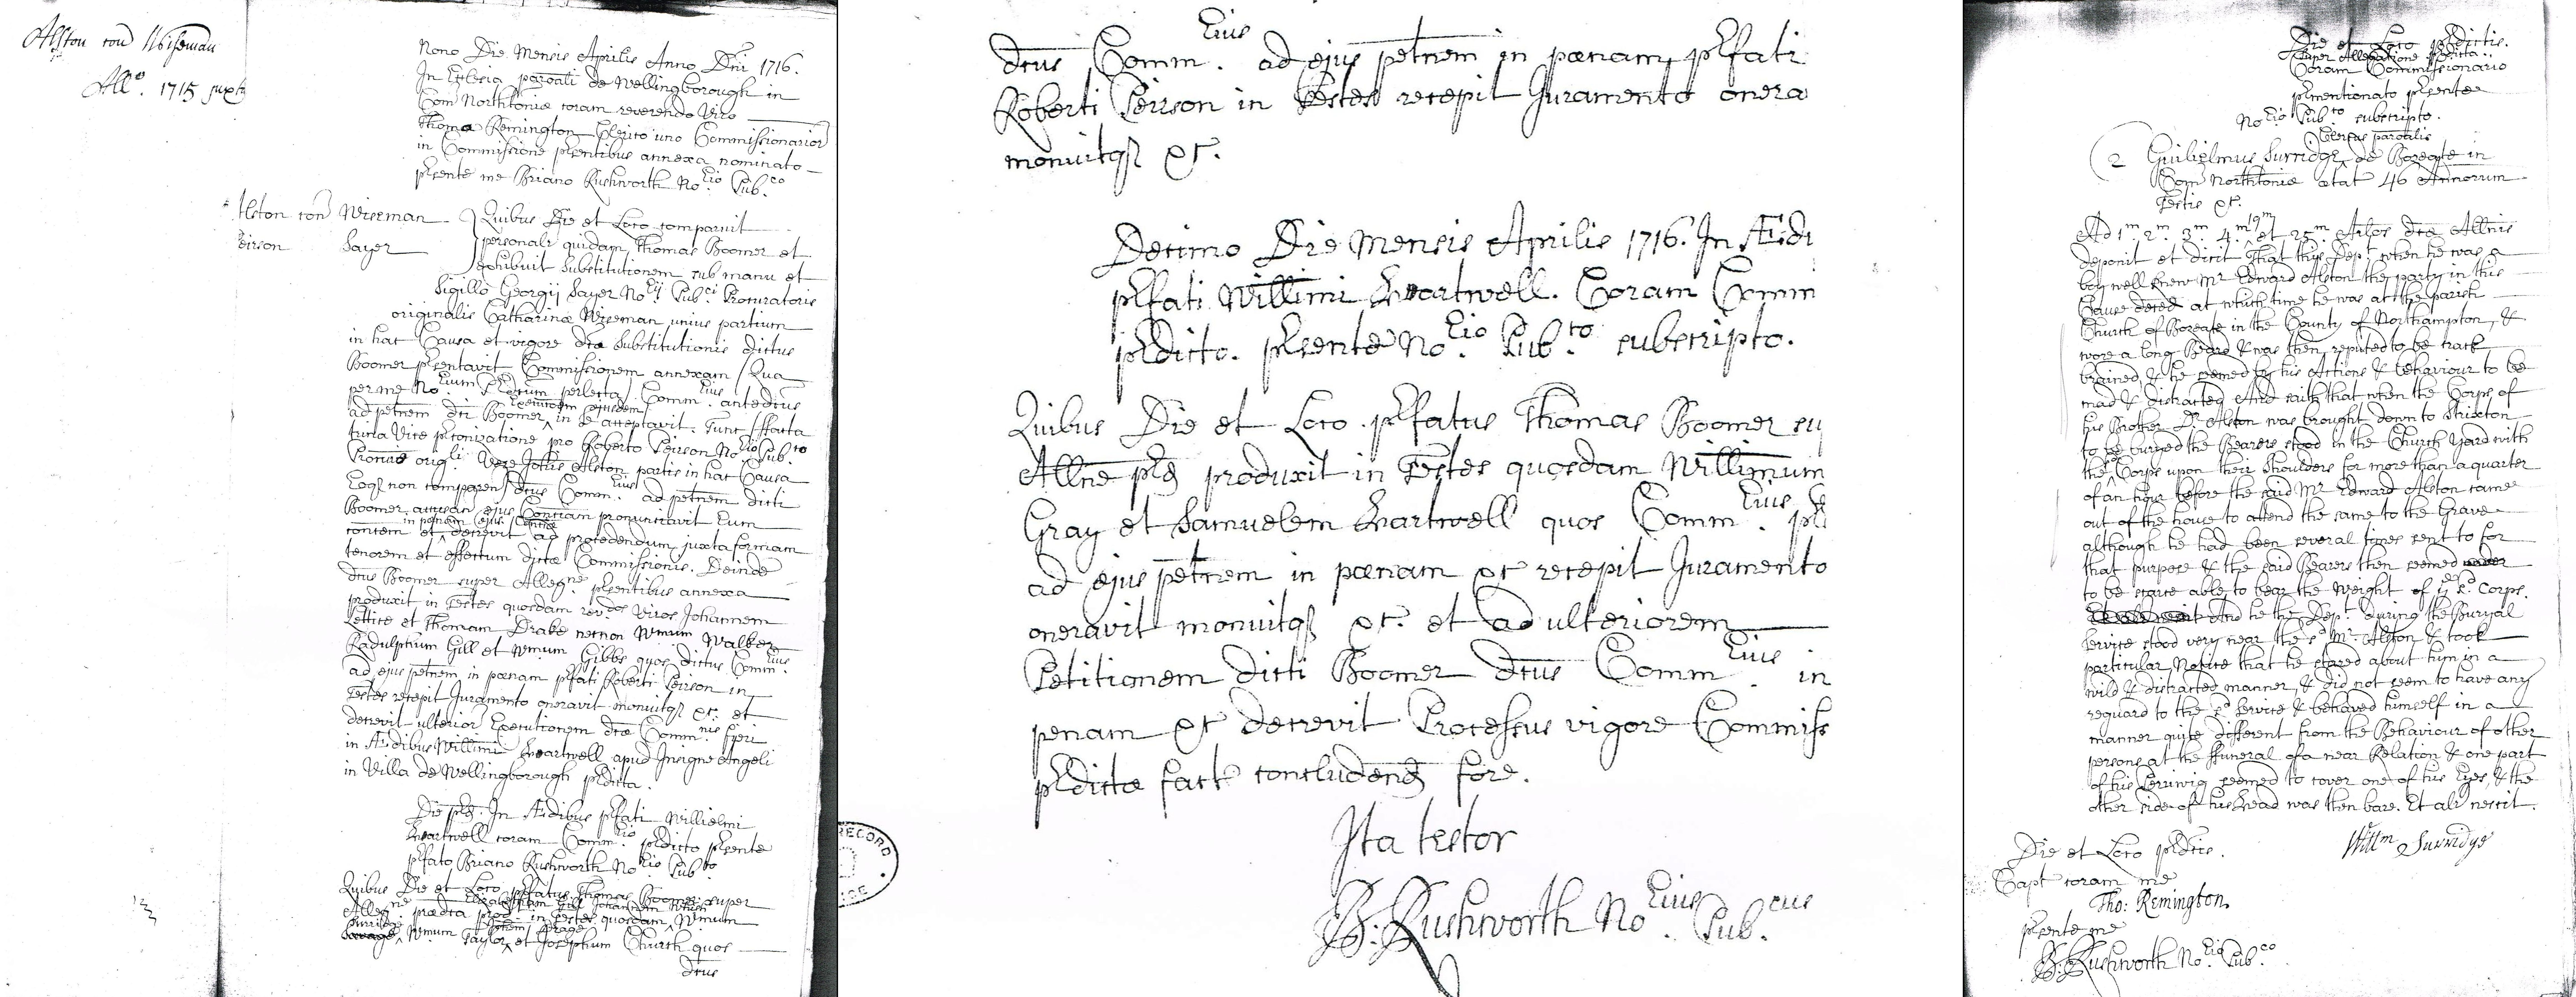 Alston con Wiseman
All.o 1715 juxta
Nono Die Mensis Aprilis Anno Dni 1716.
In Ecclesia paroali de Wellingborough in
Com Northtoniæ coram reverendo Viro
Thoma Remington Clerico uno Commissionarior
in Commissione pſentibus annexa nominato
pſente me Briano Rushworth No.rio Pub.co
Alston con Wiseman
Peirson Sayer
Quibus Die et Loco comparuit
personalr quidam Thomas Boomer et
exhibuit Substitutionem sub manu et
Sigillo Georgij Sayer No.rij Pub.ci Procuratoris
originalis Catharinæ Wiseman unius partium
in hac Causa et vigore dtæ Substitutionis dictus
Boomer pſentavit Commissionem annexam Qua
per me No.rium Pub.cum perlecta Comm.rius antedtus
ad petnem dti Boomer in se acceptavit. Tunc facta
trina Vice pconizatione pro Roberto Peirson No.rio Pub.co
Pronrie orig.li Vere Johis Alston partis in hac Causa
Eoq non comparen dtus Comm.rius ad petnem dicti
Boomer accusan ejus Contuan pronunciavit Eum
contcem et in penam ejus Contice decrevit ad procedendum juxta formam
tenorem et effectum dictæ Commissionis. Deinde
dtus Boomer super Alleg.ne pſentibus annexa
produxit in Testes quosdam rev.dos Viros Johannem
Lettice et Thomam Drake necnon Wmum Walker
Radulphum Gill et Wmum Gibbs quos dictus Comm.rius
ad ejus petnem in pœnam pſfati Roberti Peirson in
Testes recepit Juramento oneravit monuitq &c. et
decrevit ulterior Executionem dtæ Comm.nis fieri
in Ædibus Willimi Hartwell apud Insigne Angeli
in Villa de Wellingborough pſdicta.
Die pſd. In Ædibus pſfati Willielmi
Hartwell coram Comm.rio pſdicto pſente
pſfato Briano Rushworth No.rio Pub.co
Quibus Die et Loco pſfatus Thomas Boomer super
Alleg.ne prædta prod in Testes quosdam Wmum
Surridge Wmum Taylor et Josephum Church quos
dtus
dtus Comm.rius ad ejus petnem in pœnam pſfati
Roberti Peirson in Testes recepit Juramento onera
monuitq &c.
Decimo Die Mensis Aprilis 1716. In Ædi
pſfati Willimi Hartwell. Coram Comm
pſdicto. pſente No.rio Pub.co subscripto.
Quibus Die et Loco pſfatus Thomas Boomer su
Allne pſd produxit in Testes quosdam Willimum
Gray et Samuelem Hartwell quos Comm.rius
ad ejus petnem in pœnam &c recepit Juramento
oneravit monuitq &c. et ad ulteriorem
Petitionem dicti Boomer dtus Comm.rius in
penam &c decrevit Processus vigore Commiss
pſdictæ fact concludend fore.
Ita testor
B: Rushworth No.rius Pub.cus
Die et Loco pſdictis.
Super Allegatione pſdicta
Coram Commissionario
pſmentionato pſente
No.rio Pub.co subscripto.
Clericus paroalis
2 Guilielmus Surridge de Bozeate in
Com Northtoniæ ætat 46 Annorum
Testis &c.
Ad 1m 2m 3m 4m 19m et 25m Arlos dtæ Allnis
deponit et dicit That this Dep.t when he was a
boy well knew Mr Edward Alston the party in this
Cause deced at which time he was at the parish
Church of Bozeate in the County of Northampton, &
wore a long Beard & was then reputed to be crack
brained & he seemed by his Actions & behaviour to be
mad & distracted And saith that when the Corps of
his Brother Dr Alston was brought down to Strixton
to be buryed the Bearers stood in the Church Yard with
the Corps upon their Shoulders for more than a quarter
of an hour before the said Mr Edward Alston came
out of the house to attend the same to the Grave
although he had been several times sent to for
that purpose & the said Bearers then seemed
to be scarce able to bear the Weight of ye sd Corps.
And he the Dep.t during the Buryal
Service stood very near the sd Mr Alston & took
particular Notice that he stared about him in a
wild & distracted manner, & did not seem to have any
reguard to the sd Service & behaved himself in a
manner quite different from the Behaviour of other
persons at the ffuneral of a near Relation & one part
of his Perriwig seemed to cover one of his Eyes, & the
other side of his head was then bare. Et alr nescit.
Willm Surridge
Die et Loco pſdtis.
Capt coram me
Tho: Remington
pſente me
B: Rushworth No.rio Pub.co
RECORD